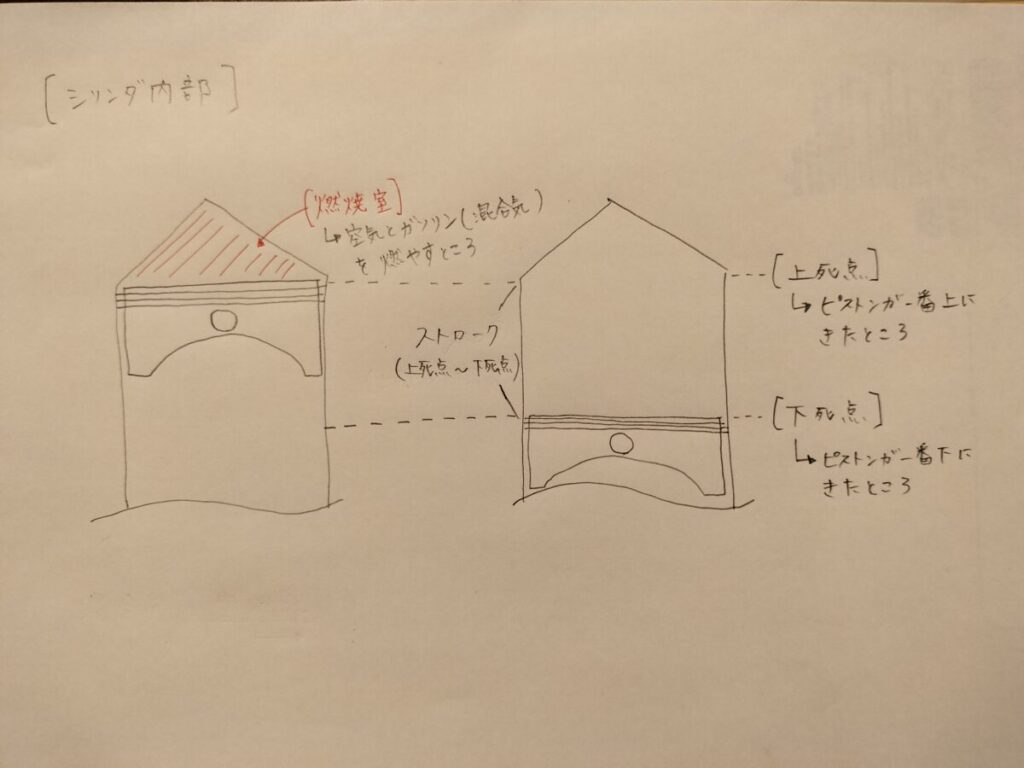 [シリンダ内部]
[燃焼室]
↳空気とガソリン(混合気)
を燃やすところ
ストローク
(上死点～下死点)
[上死点]
↳ピストンが一番上に
きたところ
[下死点]
↳ピストンが一番下に
きたところ